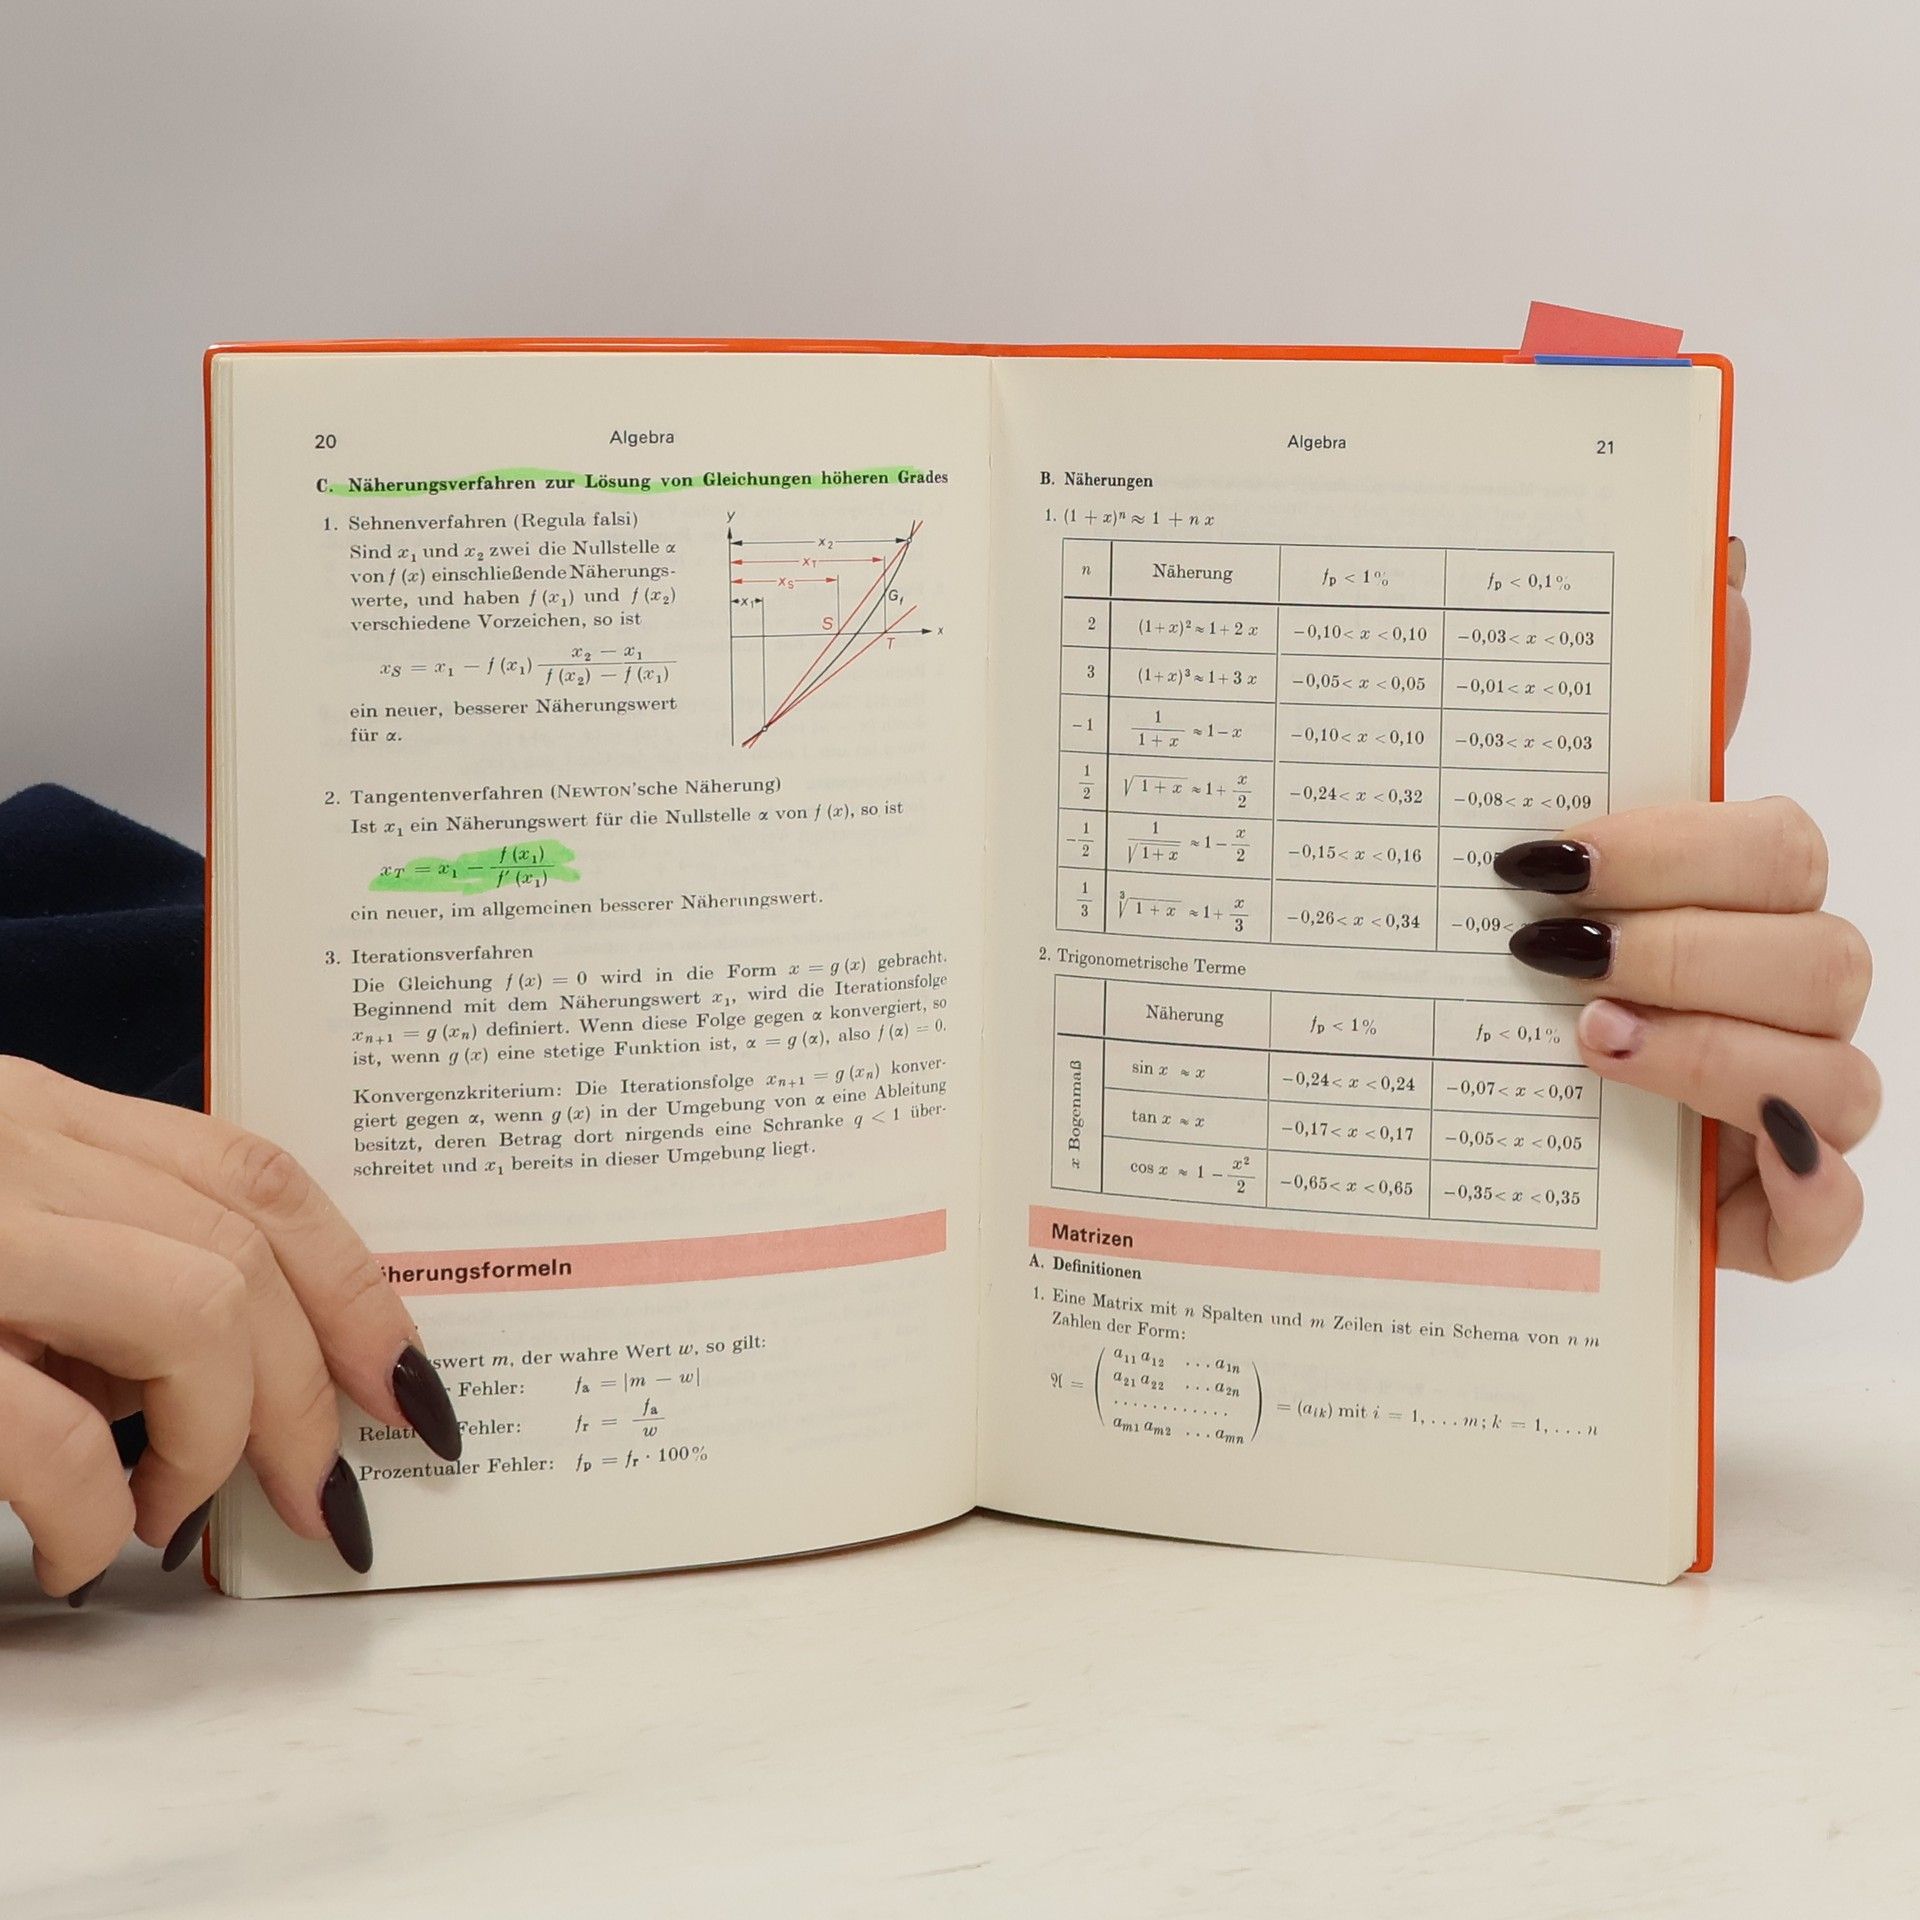 20
Algebra
C. Näherungsverfahren zur Lösung von Gleichungen höheren Grades
1. Sehnenverfahren (Regula falsi)
Sind x₁ und x₂ zwei die Nullstelle α
von f (x) einschließende Näherungs-
werte, und haben f (x₁) und f (x₂)
verschiedene Vorzeichen, so ist
x_S = x₁ − f (x₁) (x₂ − x₁)/(f (x₂) − f (x₁))
ein neuer, besserer Näherungswert
für α.
y
x₂
x_T
x_S
x₁
G_f
S
x
T
2. Tangentenverfahren (NEWTON'sche Näherung)
Ist x₁ ein Näherungswert für die Nullstelle α von f (x), so ist
x_T = x₁ − f (x₁)/f′ (x₁)
ein neuer, im allgemeinen besserer Näherungswert.
3. Iterationsverfahren
Die Gleichung f (x) = 0 wird in die Form x = g (x) gebracht.
Beginnend mit dem Näherungswert x₁, wird die Iterationsfolge
x_{n+1} = g (x_n) definiert. Wenn diese Folge gegen α konvergiert, so
ist, wenn g (x) eine stetige Funktion ist, α = g (α), also f (α) = 0.
Konvergenzkriterium: Die Iterationsfolge x_{n+1} = g (x_n) konver-
giert gegen α, wenn g (x) in der Umgebung von α eine Ableitung
besitzt, deren Betrag dort nirgends eine Schranke q < 1 über-
schreitet und x₁ bereits in dieser Umgebung liegt.
herungsformeln
swert m, der wahre Wert w, so gilt:
Fehler: f_a = |m − w|
Fehler: f_r = f_a/w
Prozentualer Fehler: f_p = f_r · 100%
Algebra
21
B. Näherungen
1. (1 + x)ⁿ ≈ 1 + n x
n Näherung f_p < 1% f_p < 0,1%
2 (1+x)² ≈ 1+2 x −0,10< x <0,10 −0,03< x <0,03
3 (1+x)³ ≈ 1+3 x −0,05< x <0,05 −0,01< x <0,01
−1 1/(1+x) ≈ 1−x −0,10< x <0,10 −0,03< x <0,03
1/2 √(1+x) ≈ 1+x/2 −0,24< x <0,32 −0,08< x <0,09
−1/2 1/√(1+x) ≈ 1−x/2 −0,15< x <0,16
1/3 ³√(1+x) ≈ 1+x/3 −0,26< x <0,34 −0,09<
2. Trigonometrische Terme
Näherung f_p < 1% f_p < 0,1%
x Bogenmaß
sin x ≈ x −0,24< x <0,24 −0,07< x <0,07
tan x ≈ x −0,17< x <0,17 −0,05< x <0,05
cos x ≈ 1 − x²/2 −0,65< x <0,65 −0,35< x <0,35
Matrizen
A. Definitionen
1. Eine Matrix mit n Spalten und m Zeilen ist ein Schema von n m
Zahlen der Form:
a₁₁ a₁₂ ... a₁ₙ
a₂₁ a₂₂ ... a₂ₙ
𝔄 = ............ = (a_{ik}) mit i = 1, ... m; k = 1, ... n
a_{m1} a_{m2} ... a_{mn}